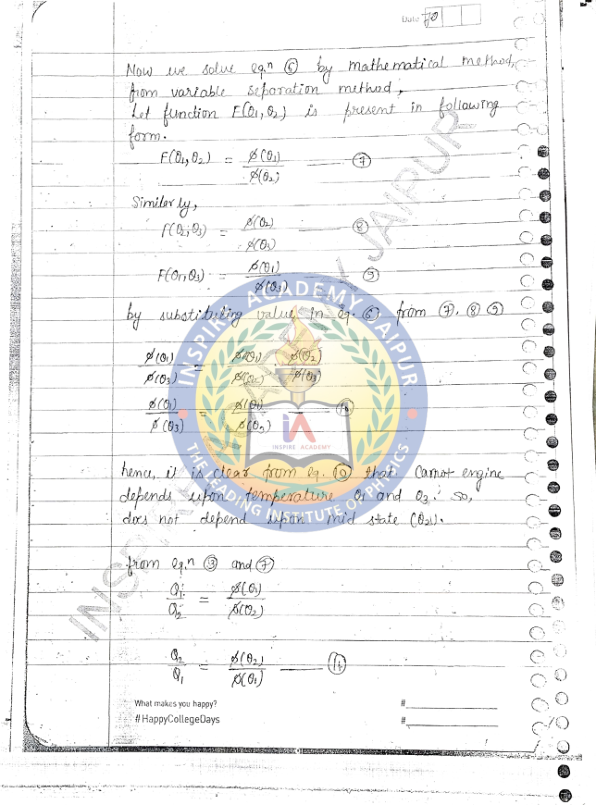 Date 70
Now we solve eq.n (6) by mathematical method,
from variable separation method,
Let function F(θ1,θ2) is present in following
form.
F(θ1,θ2) = ϕ(θ1)/ϕ(θ2) — (7)
Similarly,
f(θ2,θ3) = ϕ(θ2)/ϕ(θ3) — (8)
F(θ1,θ3) = ϕ(θ1)/ϕ(θ3) — (9)
by substituting value in eq. (6) from (7), (8) (9)
ϕ(θ1)/ϕ(θ3) = ϕ(θ1)/ϕ(θ2) ϕ(θ2)/ϕ(θ3)
ϕ(θ1)/ϕ(θ3) = ϕ(θ1)/ϕ(θ3) — (10)
hence, it is clear from eq. (10) that Carnot engine
depends upon temperature θ1 and θ3. so,
does not depend upon mid state (θ2).
from eq.n (3) and (7)
Q1/Q2 = ϕ(θ1)/ϕ(θ2)
Q2/Q1 = ϕ(θ2)/ϕ(θ1) — (11)
What makes you happy?
#HappyCollegeDays
#
#
INSPIRE ACADEMY JAIPUR
INSPIRE ACADEMY JAIPUR
iA
INSPIRE ACADEMY
THE LEADING INSTITUTE OF PHYSICS